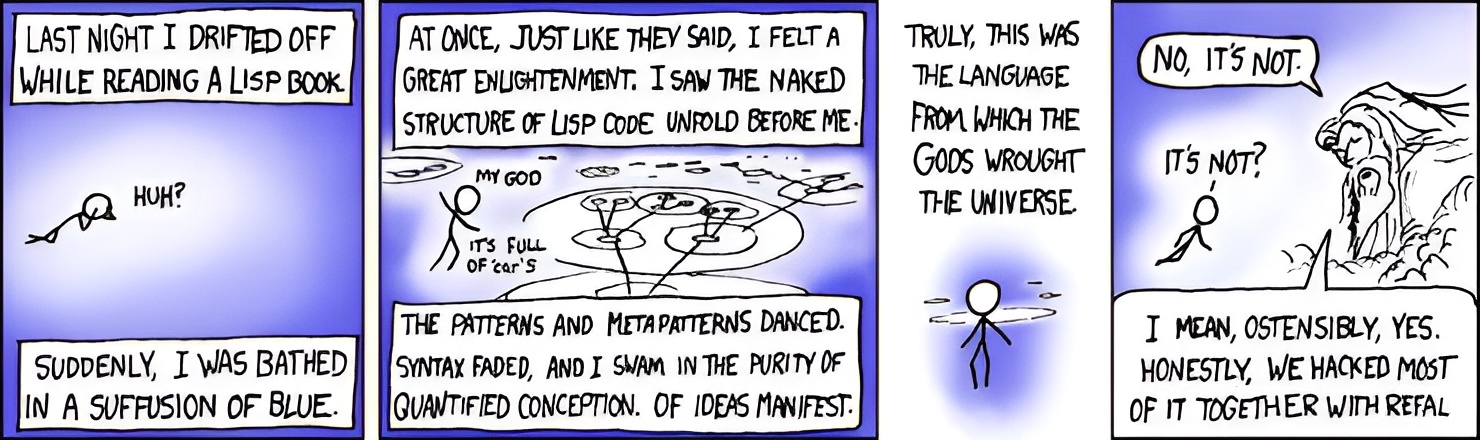 LAST NIGHT I DRIFTED OFF
WHILE READING A LISP BOOK.
HUH?
SUDDENLY, I WAS BATHED
IN A SUFFUSION OF BLUE.
AT ONCE, JUST LIKE THEY SAID, I FELT A
GREAT ENLIGHTENMENT. I SAW THE NAKED
STRUCTURE OF LISP CODE UNFOLD BEFORE ME.
MY GOD
IT'S FULL
OF 'car'S
THE PATTERNS AND METAPATTERNS DANCED.
SYNTAX FADED, AND I SWAM IN THE PURITY OF
QUANTIFIED CONCEPTION. OF IDEAS MANIFEST.
TRULY, THIS WAS
THE LANGUAGE
FROM WHICH THE
GODS WROUGHT
THE UNIVERSE.
NO, IT'S NOT.
IT'S NOT?
I MEAN, OSTENSIBLY, YES.
HONESTLY, WE HACKED MOST
OF IT TOGETHER WITH REFAL